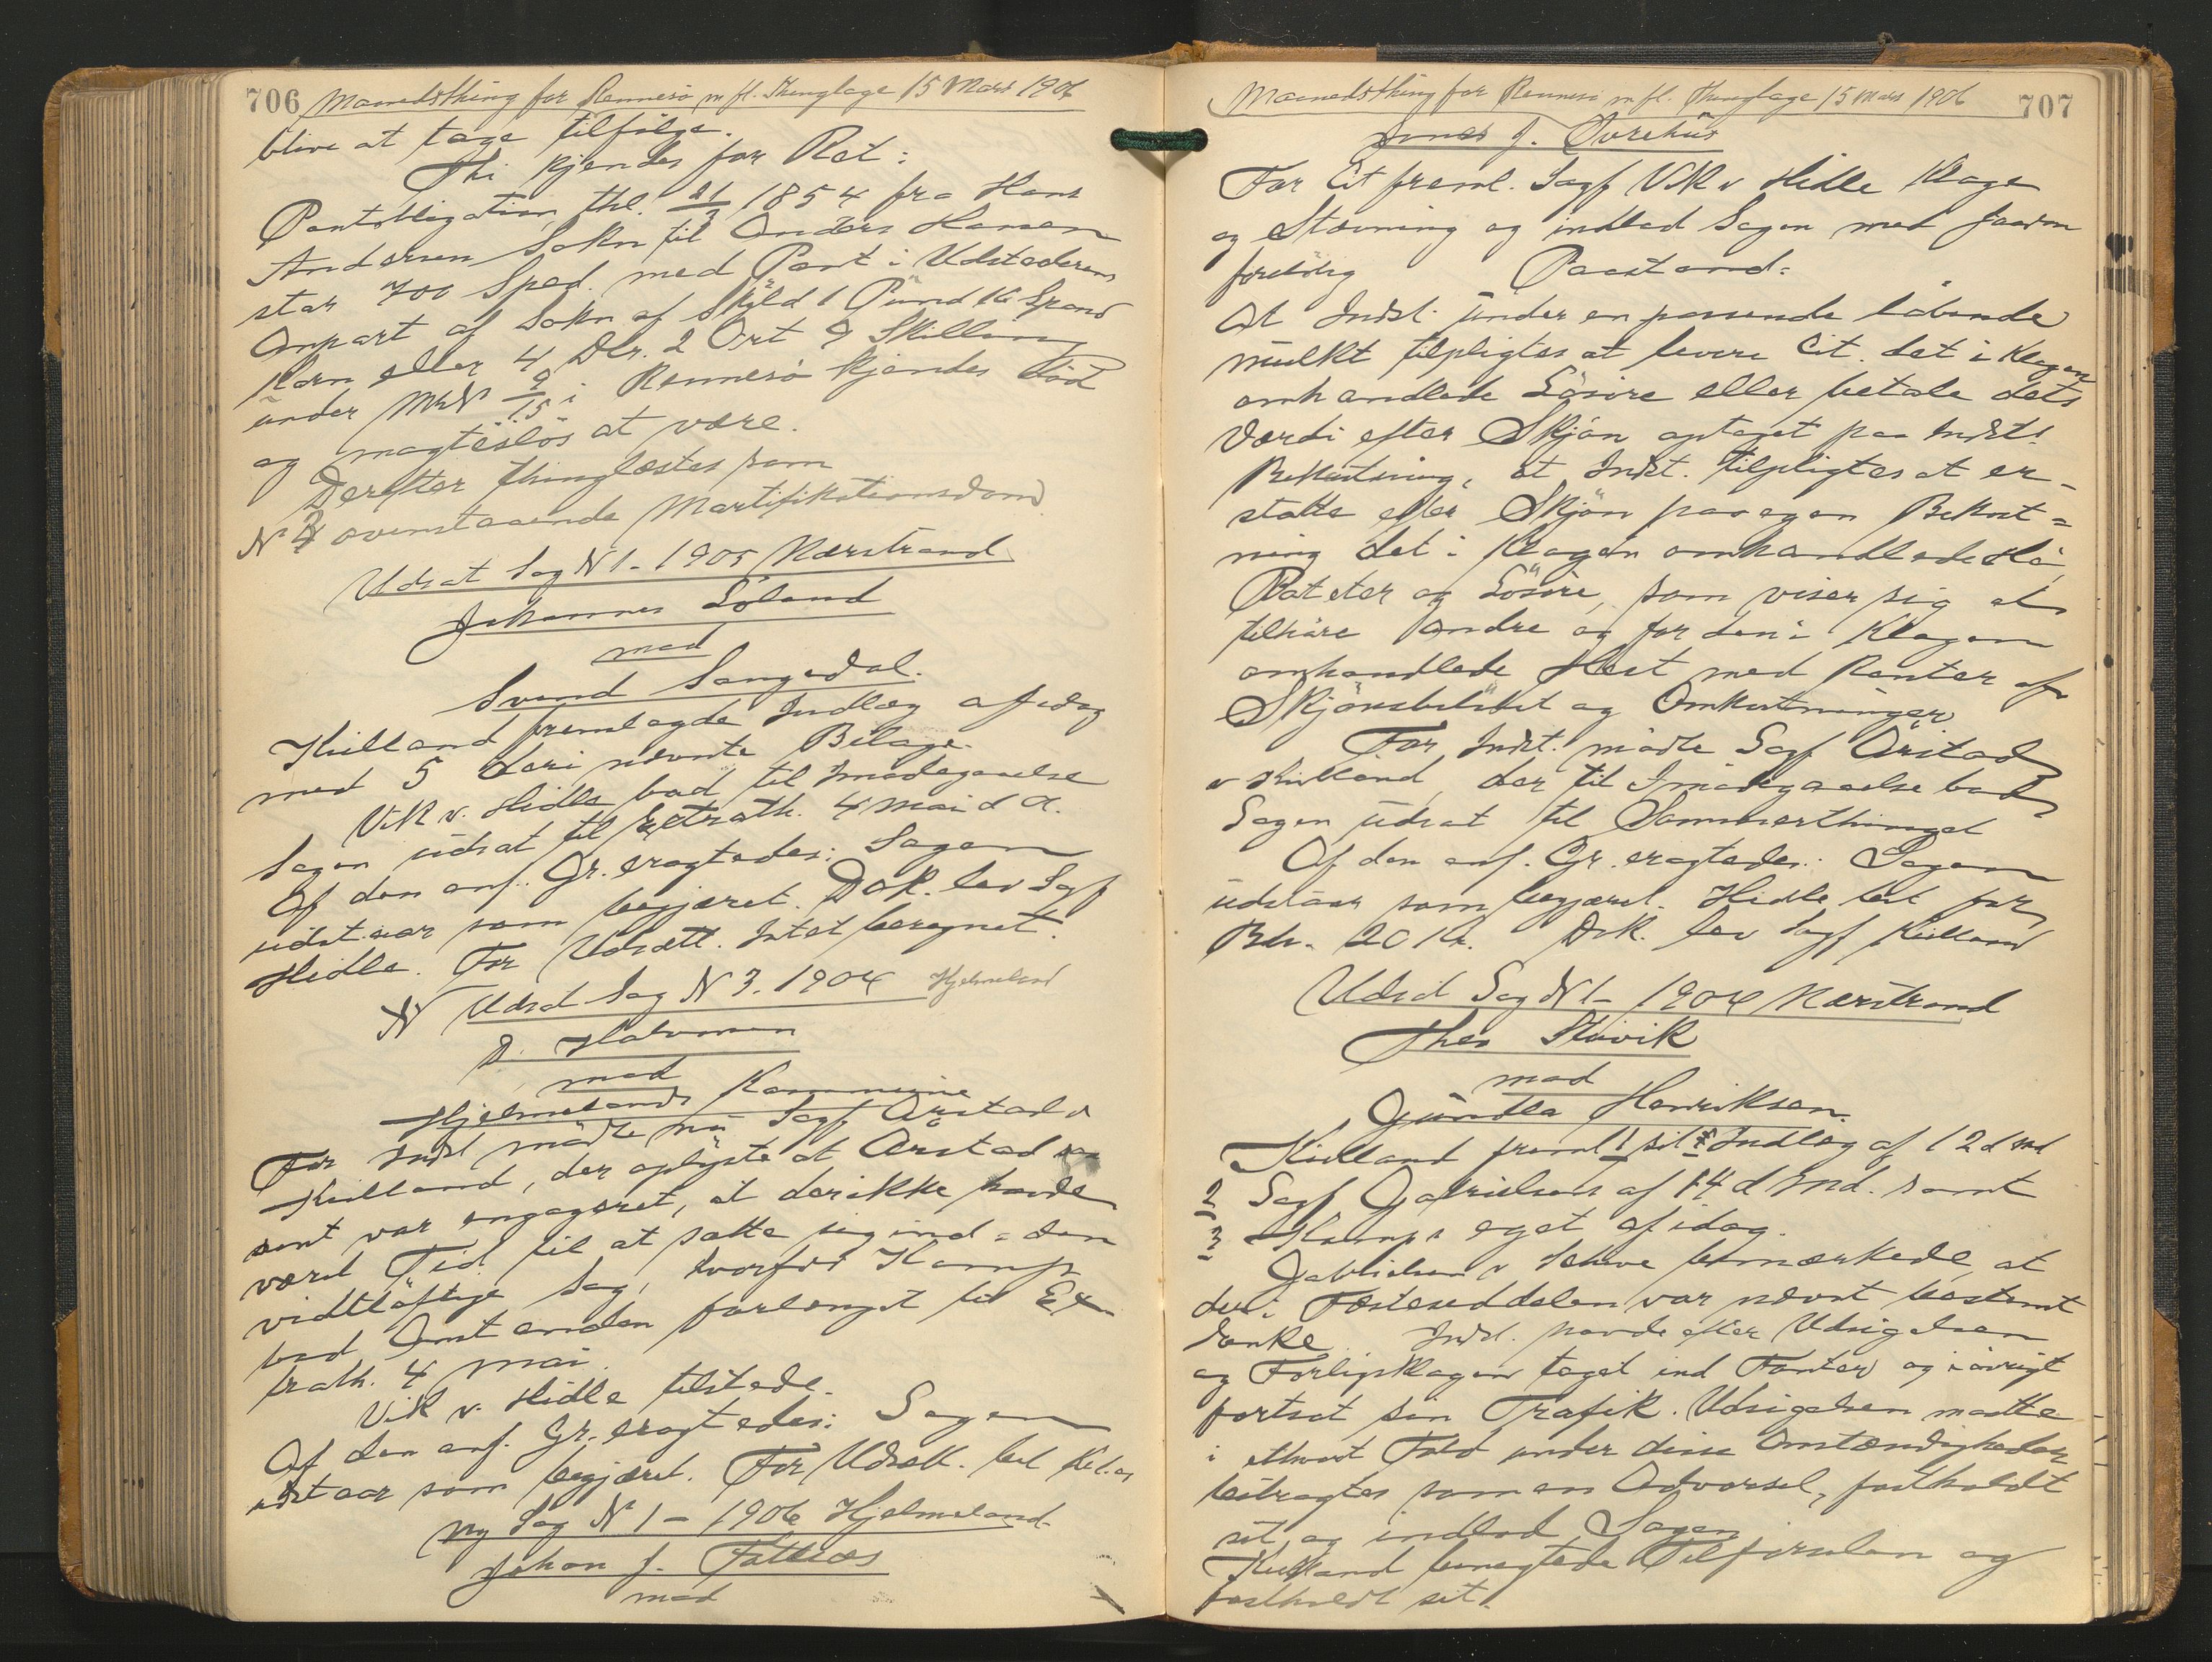 706 Maanedsthing for Rennesö m fl. Thinglage 15 Mars 1906
blive at tage tilfölge.
Thi kjendes for Ret:
Pantobligation, thl. 21/3 1854 fra Hans
Andersen Sokn til Anders Hansen
stor 700 Spd. med Pant i Udstederens
Anpart af Sokn af Skyld 1 Pund 16 Spand
Korn eller 4 Dlr. 2 Ort 9 Skilling
under Mr N 9/15 i Rennesö kjendes död
og magteslös at være.
Derefter thinglæstes som
N 3 ovenstaaende Mortifikationsdom
Udsat Sag N 1 - 1905 Nærstrand
Johannes Löland
mod
Svend Sangedal.
Kielland fremlagde Indlæg af idag
med 5 deri nævnte Bilage.
Vik v. Hidle bad til Imödegaaelse
Sagen udsat til Extrath. 4 Mai d A.
Af den anf. Gr. eragtedes: Sagen
udstaar som begjæret. Dok. lev Sagf
Hidle. For Udsætt. Intet beregnet.
N Udsat Sag N 3. 1904 Hjelmeland
Halvorsen
mod
Hjelmelands Kommune
For Indst mödte nu Sagf Örstad v
Kielland, der oplyste at Örstad saa
sent var engageret, at der ikke havde
været Tid til at sætte sig ind i den
vidtlöftige Sag, hvorfor Komp
bad Omstænden forlænget til Ex
trath. 4 Mai.
Vik v. Hidle tilstede.
Af den anf. Gr. eragtedes: Sagen
udstaar som begjæret. For Udsætt. bet
Ny Sag N 1 - 1906 Hjelmeland
Johan J.
mod
Maanedsthing for Rennesö m fl. Thinglage 15 Mars 1906 707
Jonas J. Övrehus
For Cit freml. Sagf Vik v Hidle Klage
og Stævning og indlod Sagen med saadan
forelöbig Paastand:
At Indst. under en passende löbende
mulkt tilpligtes at levere Cit. det i Klagen
omhandlede Lösöre eller betale dets
Værdi efter Skjön optaget paa Indst.
Bekostning, at Indst. tilpligtes at er-
statte efter Skjön paa egen Bekost-
ning det i Klagen omhandlede Hö,
Poteter og Lösöre, som viser sig at
tilhöre Andre og for den i Klagen
omhandlede Hest med Renter af
Skjönsbelöbet og Omkostninger
For Indst. mödte Sagf Örstad
v Kielland, der til Imödegaaelse bad
Sagen udsat til Sommerthinget
Af den anf. Gr. eragtedes: Sagen
udstaar som begjæret. Hidle bet for
20 Kr. Dok. lev Sagf Kielland
Udsat Sag N 1 - 1904 Nærstrand
Theo Stuvik
mod
Gundla Henriksen
Kielland freml 1 sit Indlæg af 12 d Md
2 Sagf Gabrielsens af 14 d Md. samt
3 Komps eget af idag.
Gabrielsen v Schive bemærkede, at
der i Fæsteseddelen var nævnt bestemt
Tanke. Indst. havde efter Udsigelsen
og Forligsklagen taget ind Fanter og iövrigt
fortsat sin Trafik. Udsigelsen maatte
i ethvert Fald under disse Omstændigheder
betragtes som en Advarsel, fastholdt
sit og indlod Sagen
Kielland benegtede Tilförselen og
fastholdt sit.